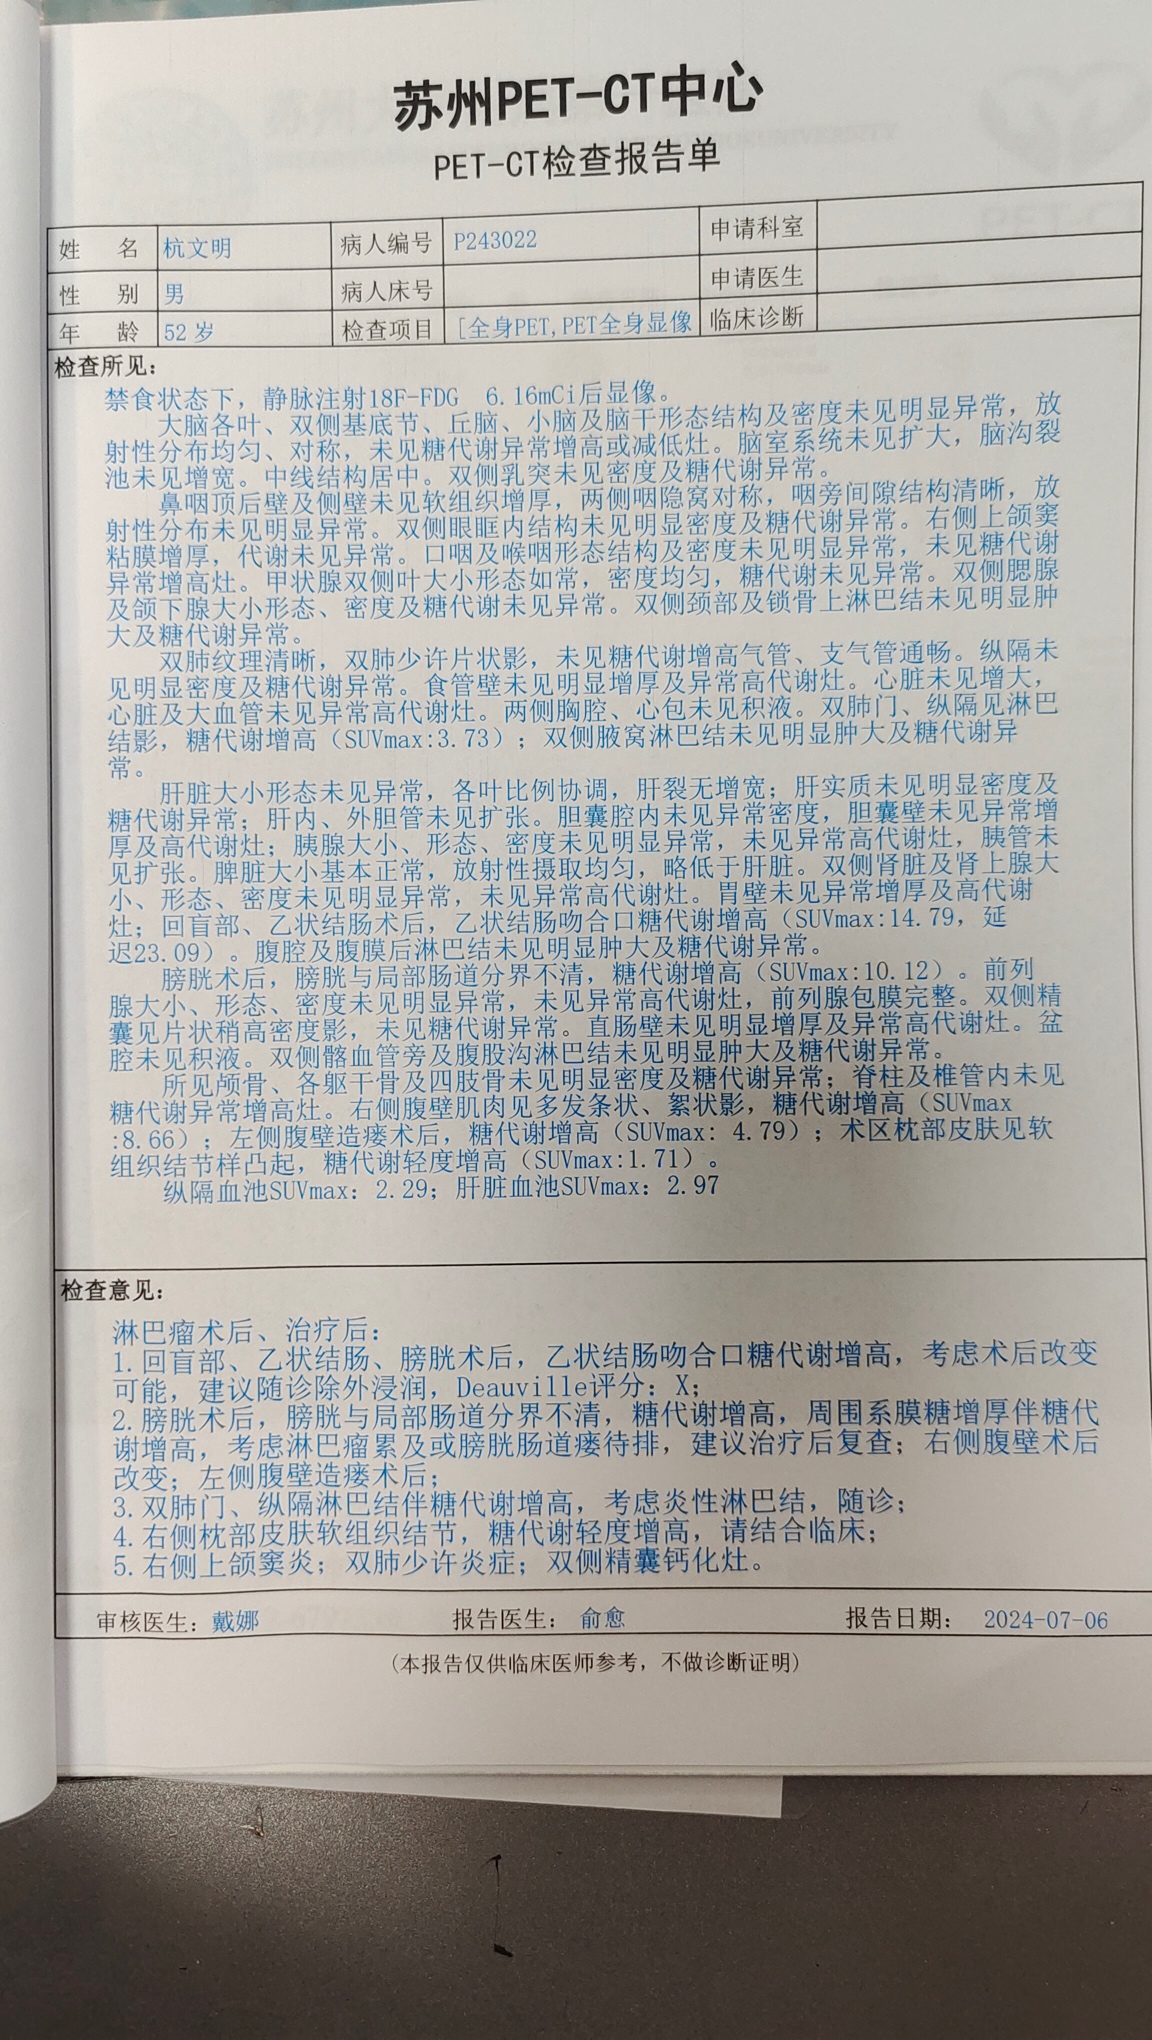 苏州PET-CT中心
PET-CT检查报告单
姓 名 杭文明 病人编号 P243022 申请科室
性 别 男 病人床号 申请医生
年 龄 52 岁 检查项目 [全身PET,PET全身显像 临床诊断
检查所见：
禁食状态下，静脉注射18F-FDG 6.16mCi后显像。
大脑各叶、双侧基底节、丘脑、小脑及脑干形态结构及密度未见明显异常，放
射性分布均匀、对称，未见糖代谢异常增高或减低灶。脑室系统未见扩大，脑沟裂
池未见增宽。中线结构居中。双侧乳突未见密度及糖代谢异常。
鼻咽顶后壁及侧壁未见软组织增厚，两侧咽隐窝对称，咽旁间隙结构清晰，放
射性分布未见明显异常。双侧眼眶内结构未见明显密度及糖代谢异常。右侧上颌窦
粘膜增厚，代谢未见异常。口咽及喉咽形态结构及密度未见明显异常，未见糖代谢
异常增高灶。甲状腺双侧叶大小形态如常，密度均匀，糖代谢未见异常。双侧腮腺
及颌下腺大小形态、密度及糖代谢未见异常。双侧颈部及锁骨上淋巴结未见明显肿
大及糖代谢异常。
双肺纹理清晰，双肺少许片状影，未见糖代谢增高气管、支气管通畅。纵隔未
见明显密度及糖代谢异常。食管壁未见明显增厚及异常高代谢灶。心脏未见增大，
心脏及大血管未见异常高代谢灶。两侧胸腔、心包未见积液。双肺门、纵隔见淋巴
结影，糖代谢增高（SUVmax:3.73）；双侧腋窝淋巴结未见明显肿大及糖代谢异
常。
肝脏大小形态未见异常，各叶比例协调，肝裂无增宽；肝实质未见明显密度及
糖代谢异常；肝内、外胆管未见扩张。胆囊腔内未见异常密度，胆囊壁未见异常增
厚及高代谢灶；胰腺大小、形态、密度未见明显异常，未见异常高代谢灶，胰管未
见扩张。脾脏大小基本正常，放射性摄取均匀，略低于肝脏。双侧肾脏及肾上腺大
小、形态、密度未见明显异常，未见异常高代谢灶。胃壁未见异常增厚及高代谢
灶；回盲部、乙状结肠术后，乙状结肠吻合口糖代谢增高（SUVmax:14.79，延
迟23.09）。腹腔及腹膜后淋巴结未见明显肿大及糖代谢异常。
膀胱术后，膀胱与局部肠道分界不清，糖代谢增高（SUVmax:10.12）。前列
腺大小、形态、密度未见明显异常，未见异常高代谢灶，前列腺包膜完整。双侧精
囊见片状稍高密度影，未见糖代谢异常。直肠壁未见明显增厚及异常高代谢灶。盆
腔未见积液。双侧髂血管旁及腹股沟淋巴结未见明显肿大及糖代谢异常。
所见颅骨、各躯干骨及四肢骨未见明显密度及糖代谢异常；脊柱及椎管内未见
糖代谢异常增高灶。右侧腹壁肌肉见多发条状、絮状影，糖代谢增高（SUVmax
:8.66）；左侧腹壁造瘘术后，糖代谢增高（SUVmax: 4.79）；术区枕部皮肤见软
组织结节样凸起，糖代谢轻度增高（SUVmax:1.71）。
纵隔血池SUVmax：2.29；肝脏血池SUVmax：2.97
检查意见：
淋巴瘤术后、治疗后：
1.回盲部、乙状结肠、膀胱术后，乙状结肠吻合口糖代谢增高，考虑术后改变
可能，建议随诊除外浸润，Deauville评分：X；
2.膀胱术后，膀胱与局部肠道分界不清，糖代谢增高，周围系膜糖增厚伴糖代
谢增高，考虑淋巴瘤累及或膀胱肠道瘘待排，建议治疗后复查；右侧腹壁术后
改变；左侧腹壁造瘘术后；
3.双肺门、纵隔淋巴结伴糖代谢增高，考虑炎性淋巴结，随诊；
4.右侧枕部皮肤软组织结节，糖代谢轻度增高，请结合临床；
5.右侧上颌窦炎；双肺少许炎症；双侧精囊钙化灶。
审核医生：戴娜 报告医生：俞愈 报告日期：2024-07-06
(本报告仅供临床医师参考，不做诊断证明)